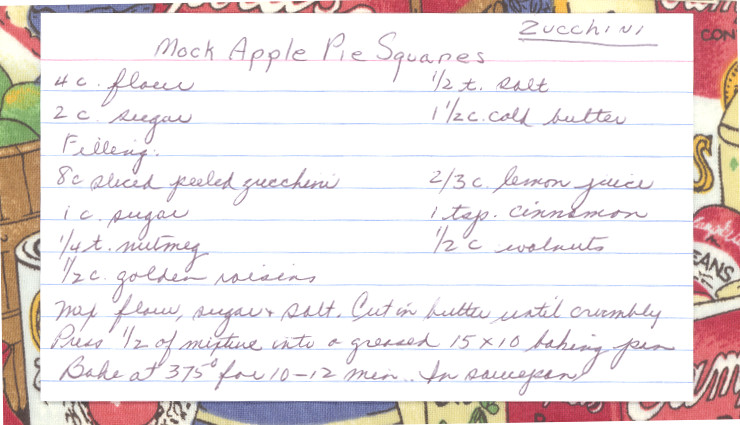 Zucchini
Mock Apple Pie Squares
4 c. flour 1/2 t. salt
2 c. sugar 1 1/2 c. cold butter
Filling:
8c sliced peeled zucchini 2/3 c. lemon juice
1 c. sugar 1 tsp. cinnamon
1/4 t. nutmeg 1/2 c walnuts
1/2 c. golden raisins
Mix flour, sugar & salt. Cut in butter until crumbly
Press 1/2 of mixture into a greased 15 x 10 baking pan
Bake at 375° for 10-12 min.. In saucepan
CON
S
EANS
am